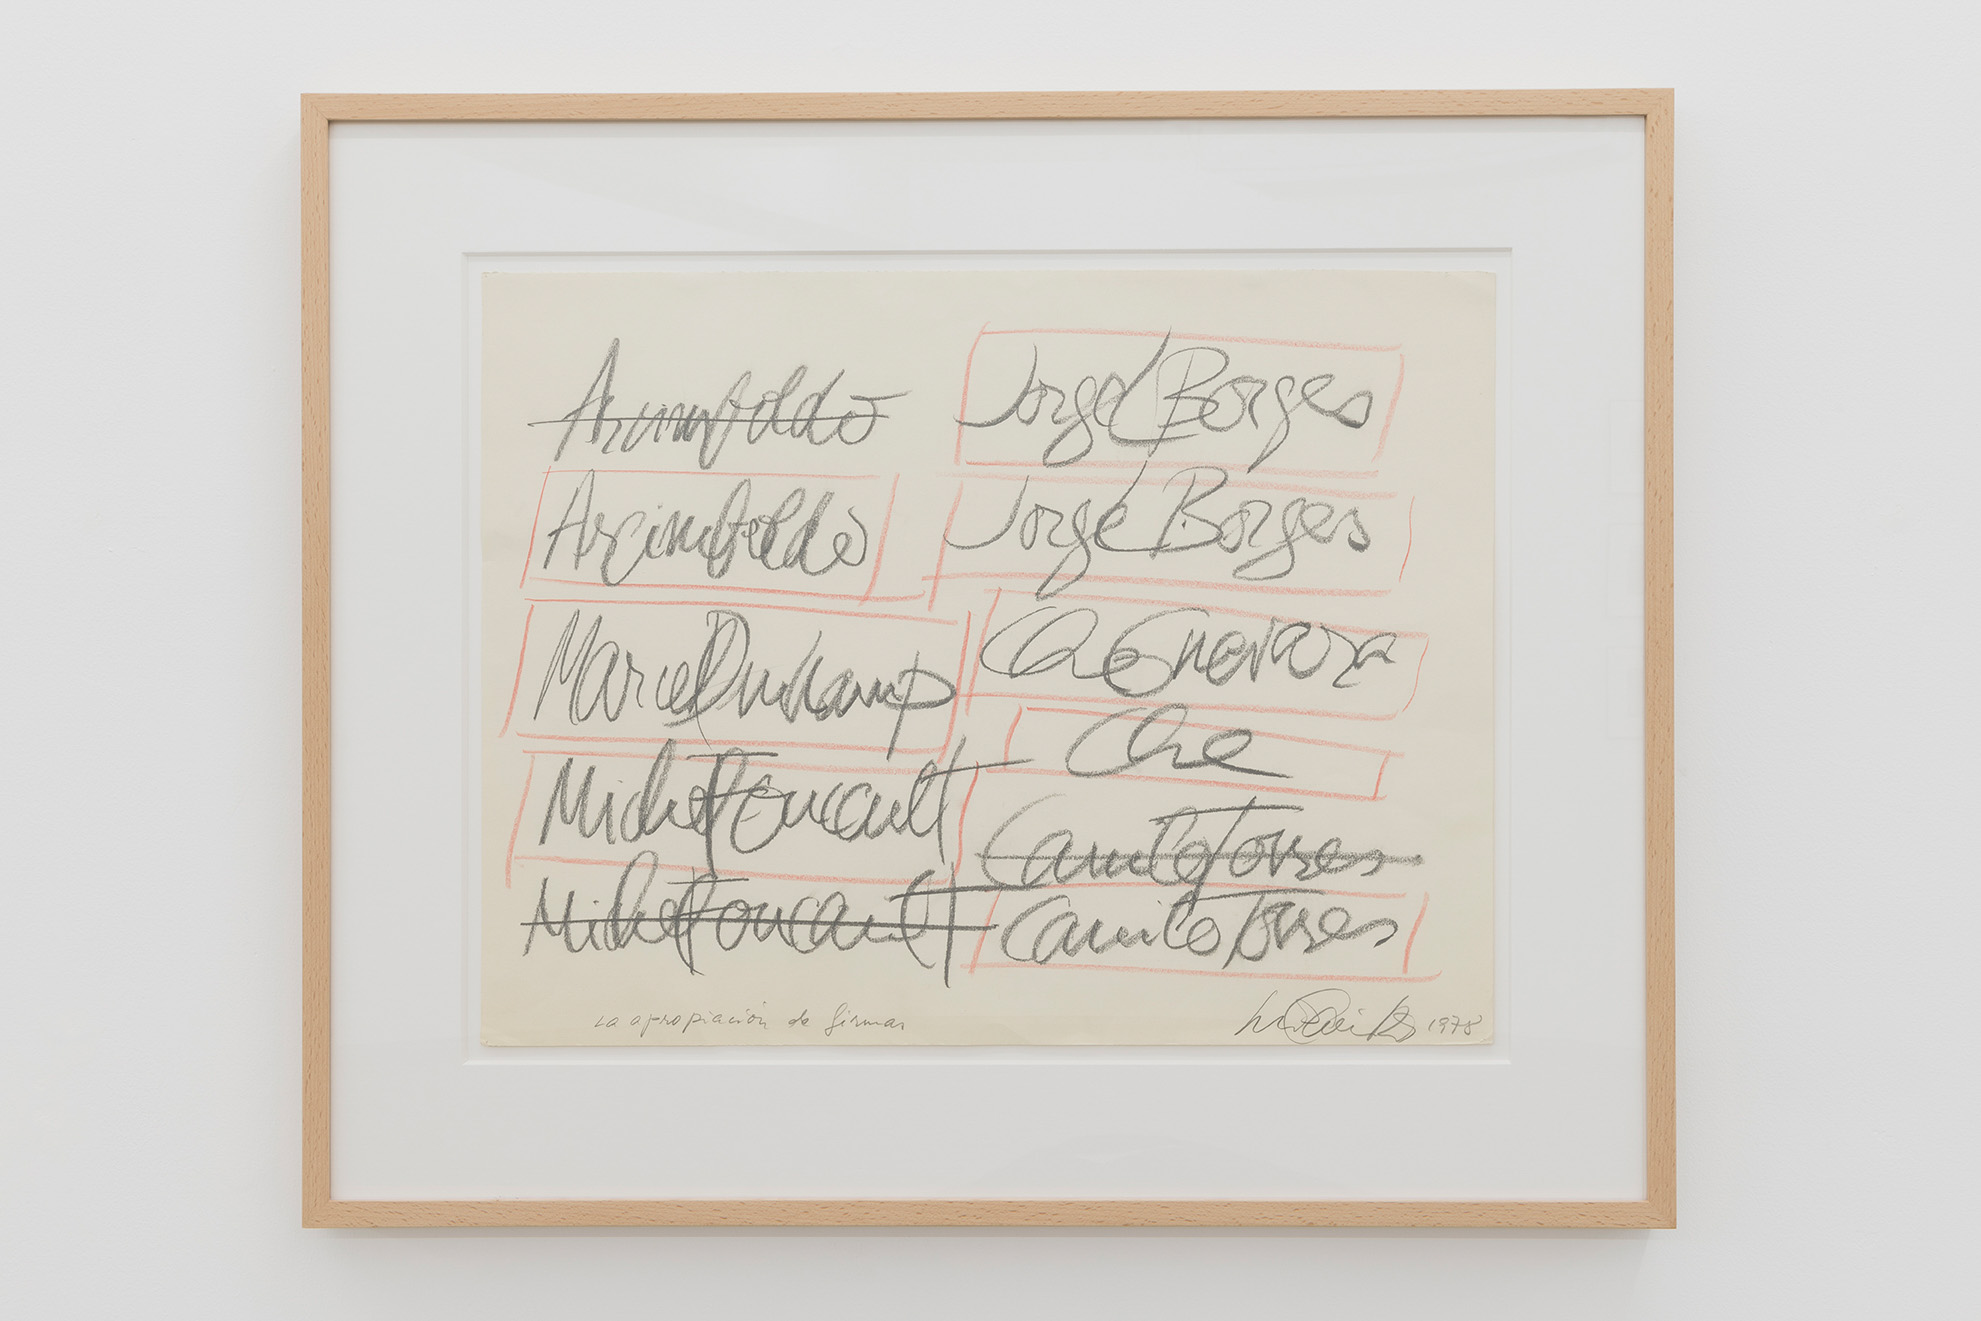 Arcimboldo
Arcimboldo
Marcel Duchamp
Michel Foucault
Michel Foucault
Jorge L Borges
Jorge L Borges
Che Guevara
Che
Camilo Torres
Camilo Torres
La apropiación de firmas
1978